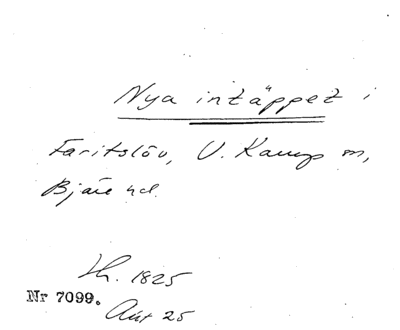 Nya intäppet i
Faritslöv, V. Karup sn,
Bjäre hd.
Lh. 1825
Nr 7099.
Akt 25